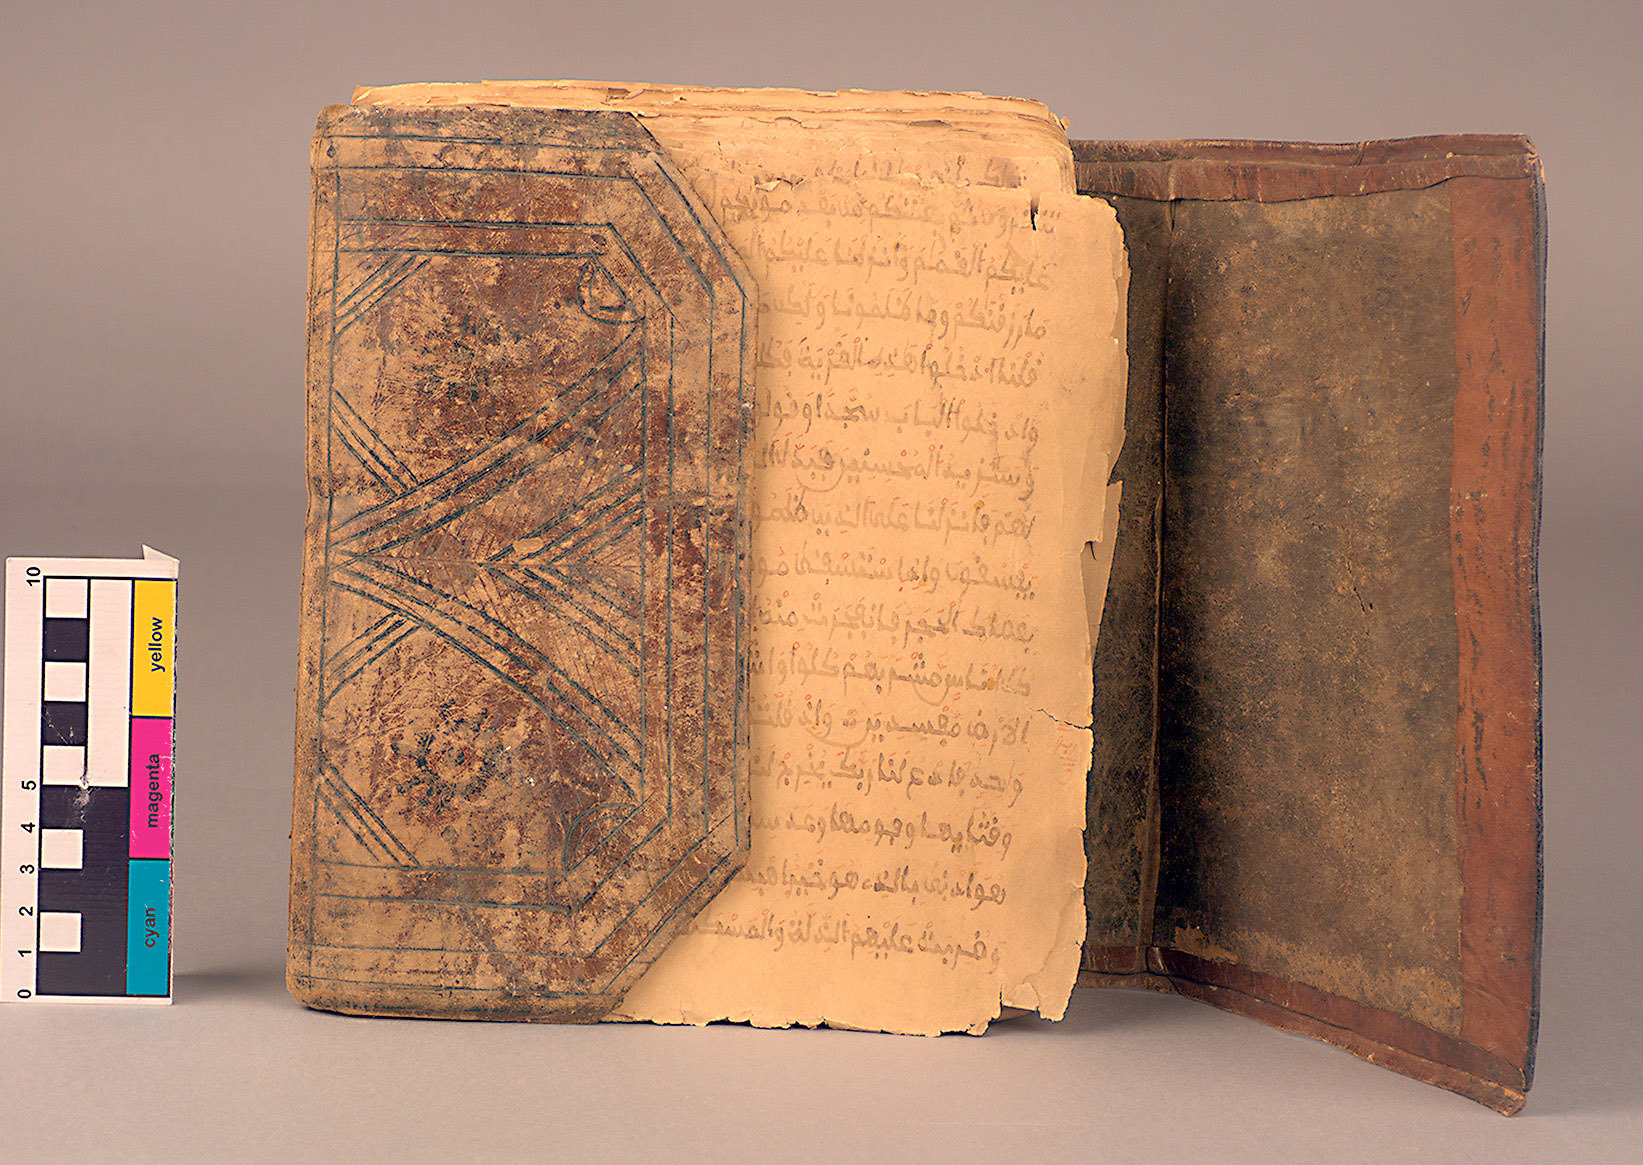 ثم بعثنكم من بعد موتكم
عليكم الغمم وانزلنا عليكم
ما رزقنكم وما ظلمونا ولكن
قلنا ادخلوا هذه القرية
وادخلوا الباب سجدا وقولوا
وسنزيد المحسنين فبدل
لهم فانزلنا على الذين ظلموا
يفسقون واذ استسقى
بعصاك الحجر فانفجرت منه
كل اناس مشربهم كلوا
الارض مفسدين واذ قلتم
وحد فادع لنا ربك يخرج
وقثايها وفومها
هو ادنى بالذي هو خير
وضربت عليهم الذلة والمسكنة
10
5
4
3
2
1
0
yellow
magenta
cyan